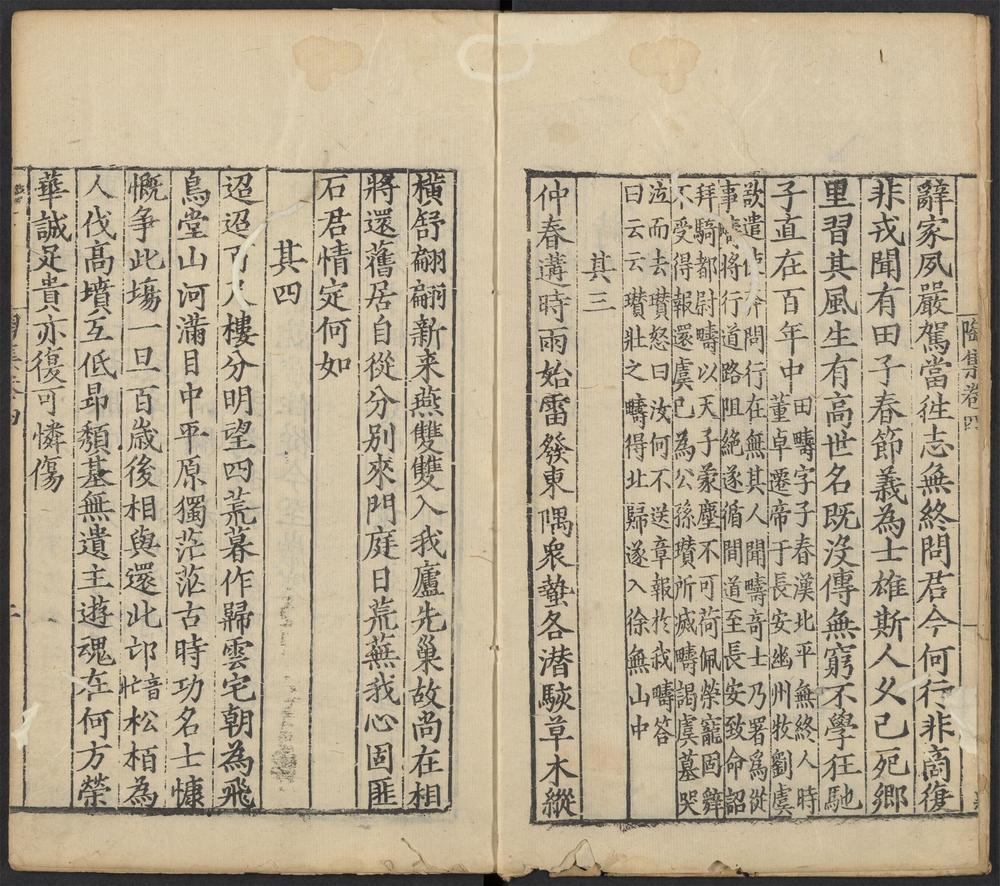 陶集卷四
辭家夙嚴駕當往志無終問君今何行非商復
非戎聞有田子春節義為士雄斯人乆已死鄉
里習其風生有高世名既没傳無窮不學狂馳
子直在百年中
田疇字子春漢北平無終人時
董卓遷帝于長安幽州牧劉虞
歎遣使奔問行在無其人聞疇奇士乃署爲從
事疇將行道路阻絕遂循間道至長安致命詔
拜騎都尉疇以天子蒙塵不可荷佩榮寵固辭
不受得報還虞已為公孫瓚所滅疇謁虞墓哭
泣而去瓚怒曰汝何不送章報於我疇答
曰云云瓚壯之疇得北歸遂入徐無山中
其三
仲春遘時雨始雷發東隅衆蟄各潛駭草木縱
橫舒翩翩新来燕雙雙入我廬先巢故尚在相
將還舊居自從分别來門庭日荒蕪我心固匪
石君情定何如
其四
迢迢百尺樓分明望四荒暮作歸雲宅朝為飛
鳥堂山河滿目中平原獨茫茫古時功名士慷
慨争此場一旦百歳後相與還此邙
音
忙
松栢為
人伐髙墳互低昻頽基無遺主遊魂在何方榮
華誠足貴亦復可憐傷